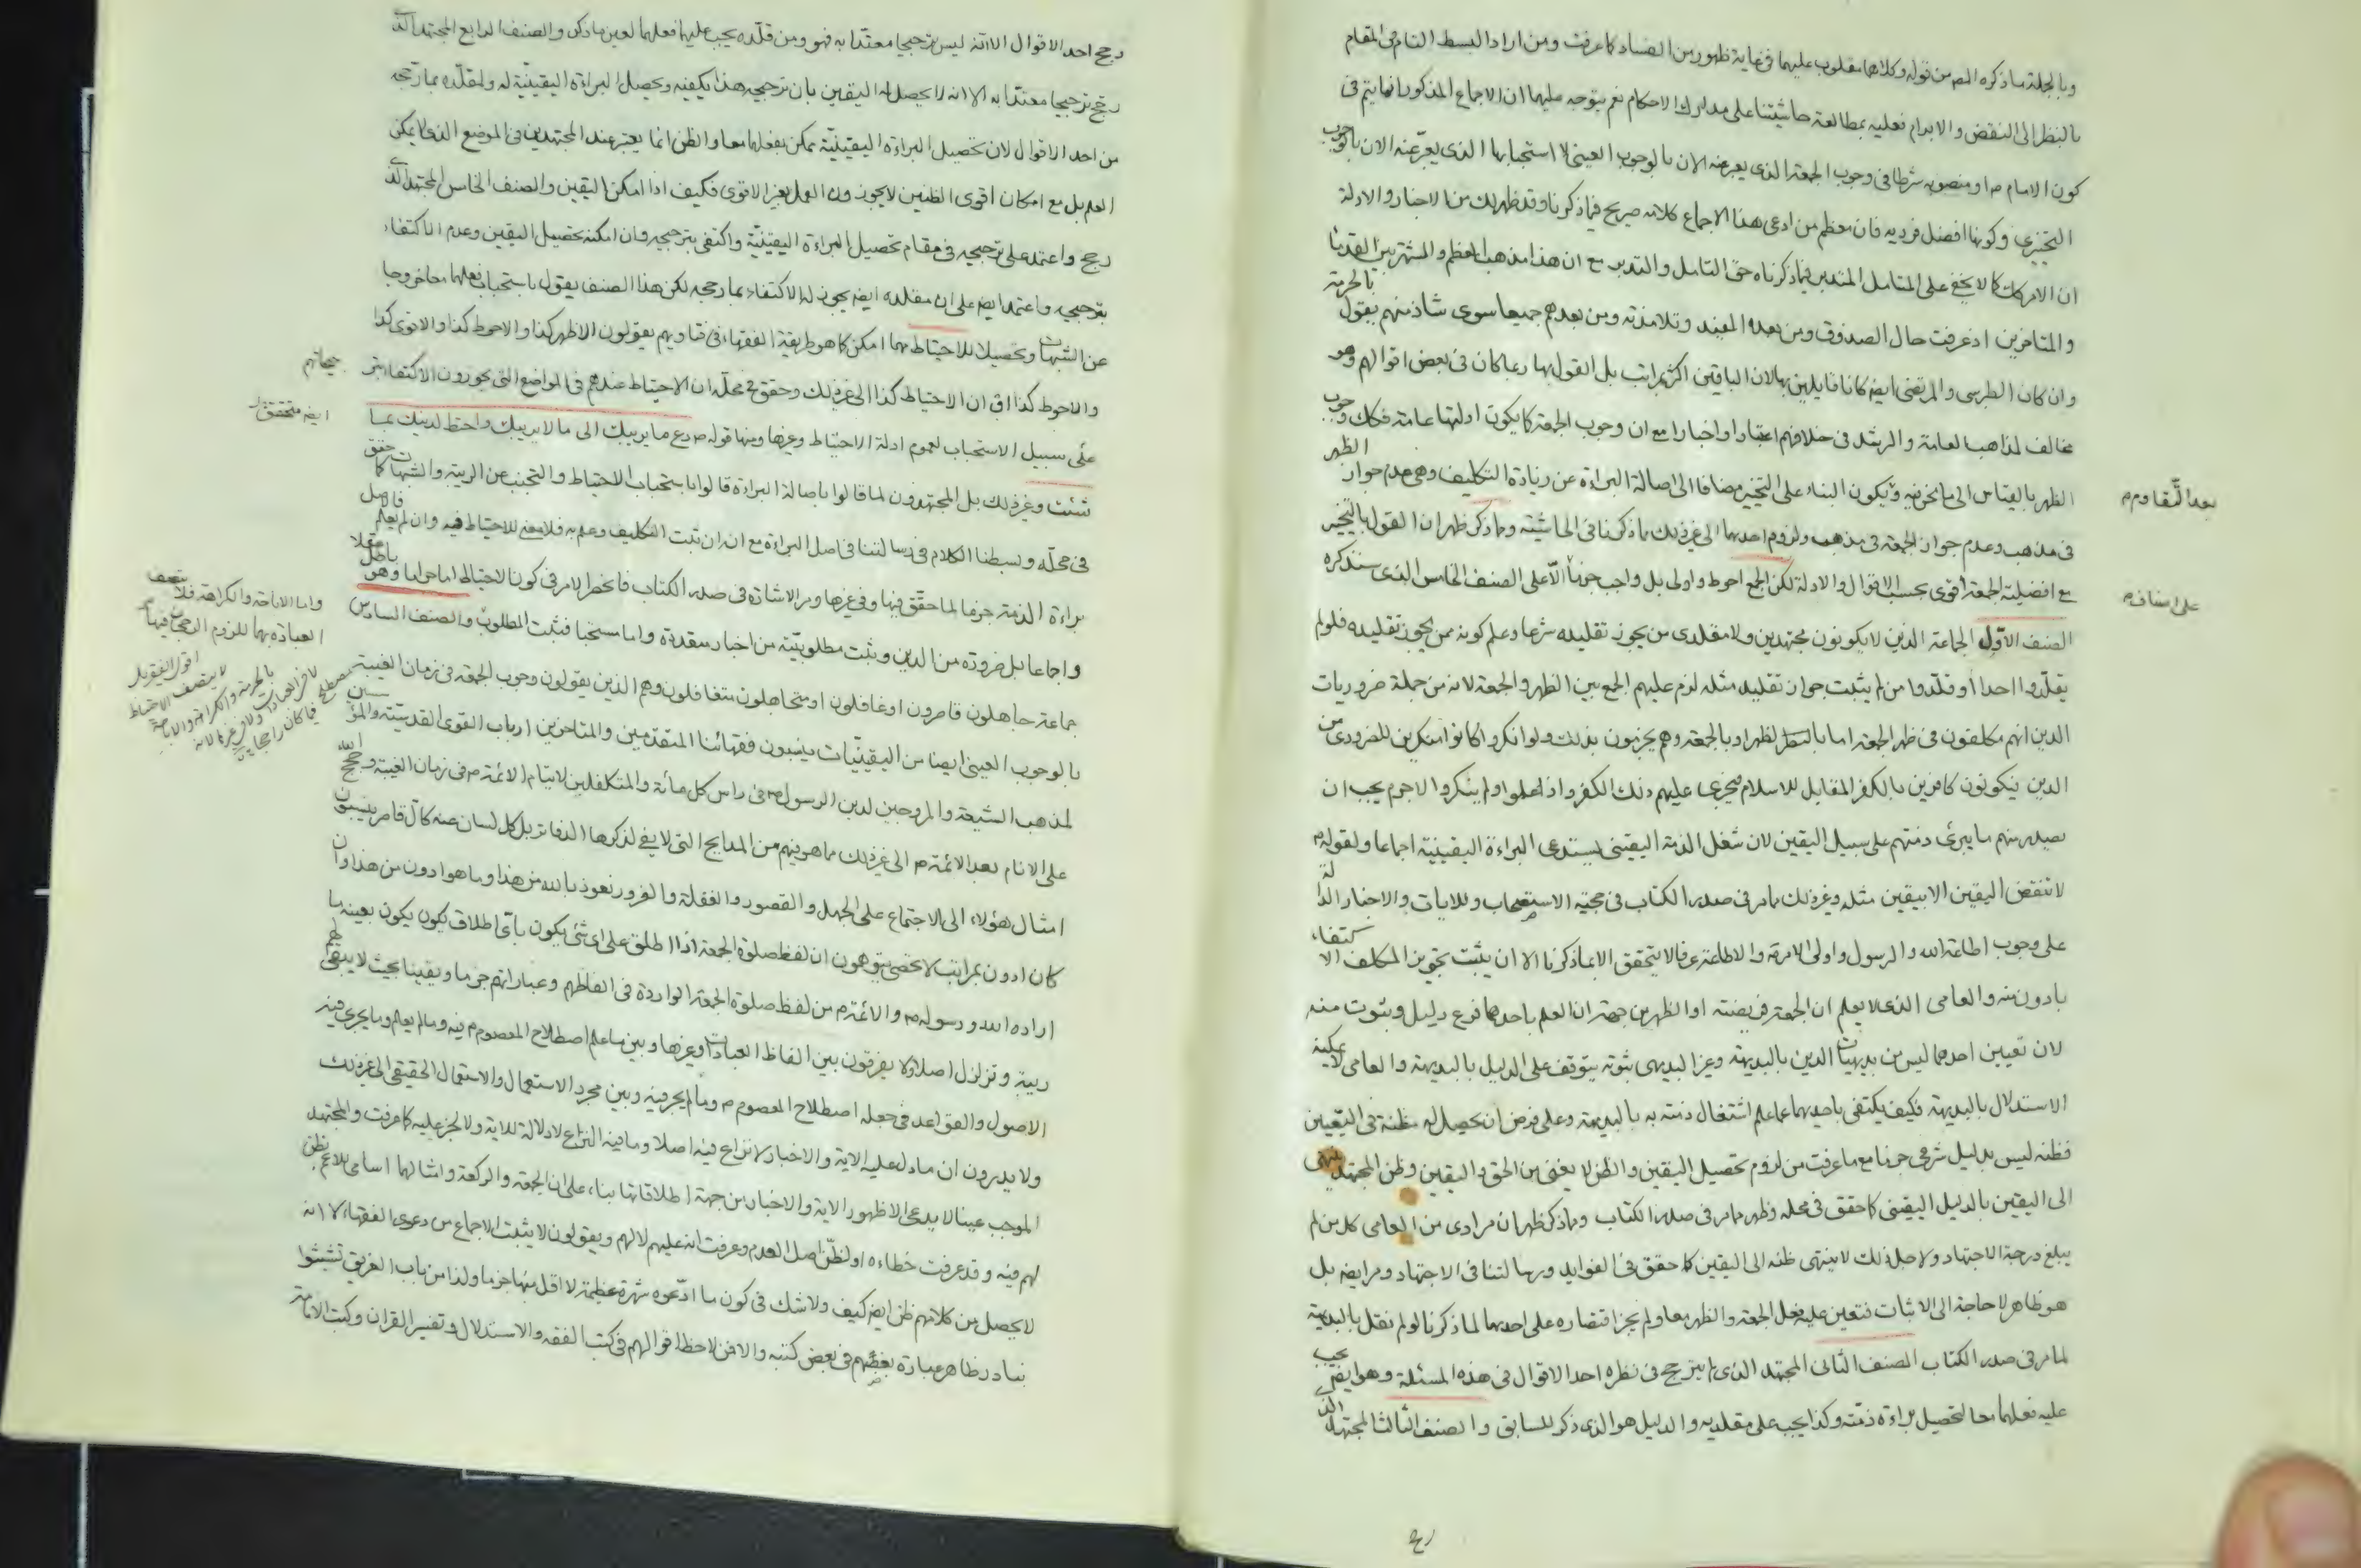 وبالجملة ما ذكره المص من قوله وكلاهما مقلوب عليهما في غاية ظهور من الفساد كما عرفت ومن اراد البسط التام في المقام
بالنظر الى النقض والابرام فعليه بمطالعة حاشيتنا على مدارك الاحكام نعم يتوجه عليهما ان الاجماع المذكور انما يتم في
كون الامام م او منصوبه شرطا في وجوب الجمعة الذي يعبر عنه الان بالوجوب العيني لا استحبابها الذي يعبر عنه الان بالوجوب
التخييري وكونها افضل فرديه فان معظم من ادعى هذا الاجماع كلامه صريح فيما ذكرنا وقد ظهر لك من الاخبار والادلة
ان الامر كك كما لا يخفى على المتامل المتدبر فيما ذكرناه حق التامل والتدبر مع ان هذا مذهب المعظم والمشتهر بين القدماء
والمتاخرين اذ عرفت حال الصدوق ومن بعده المفيد وتلامذته ومن بعدهم جميعا سوى شاذ منهم يقول بالحرمة
وان كان الطبرسي والمرتضى ايضه كانا قايلين بها لان الباقين اكثر بمراتب بل القول بها ربما كان في بعض اقوالهم وهو
مخالف لمذاهب العامة والرشد في خلافهم اعتبارا واخبارا مع ان وجوب الجمعة كما يكون ادلتها عامة فكك وجوب
الظهر بالقياس الى ما نحن فيه ويكون البناء على التخيير مضافا الى اصالة البراءة عن زيادة التكليف وهي عدم جواز الظهر
بعد التقاوم م
في مذهب وعدم جواز الجمعة في مذهب ولزوم احديهما الى غير ذلك مما ذكرنا في الحاشية ومما ذكر ظهر ان القول بالتخيير
مع افضلية الجمعة اقوى بحسب الاقوال والادلة لكن الجمع احوط واولى بل واجب جزما الا على الصنف الخامس الذي سنذكره
على اصناف م
الصنف الاول الجماعة الذين لا يكونون مجتهدين ولا مقلدي من يجوز تقليده شرعا وعلم كونه ممن يجوز تقليده فلو لم
يقلدوا احدا او قلدوا من لم يثبت جواز تقليد مثله لزم عليهم الجمع بين الظهر والجمعة لانه من جملة ضروريات
الدين انهم مكلفون في ظهر الجمعة اما بالظهر او بالجمعة وهم يجزمون بذلك ولو انكروا كانوا منكرين للضروري من
الدين فيكونون كافرين بالكفر المقابل للاسلام فيجري عليهم ذلك الكفر واذا علموا ولم ينكروا لاجرم يجب ان
يصدر منهم ما يبرئ ذمتهم على سبيل اليقين لان شغل الذمة اليقيني يستدعي البراءة اليقينية اجماعا ولقوله م
لا تنقض اليقين الا بيقين مثله وغير ذلك مما مر في صدر الكتاب في حجية الاستصحاب وللايات والاخبار الدالة
على وجوب اطاعة الله والرسول واولي الامر م والاطاعة عرفا لا يتحقق الا بما ذكرنا الا ان يثبت تجويز المكلف الاكتفاء
بادون منه والعامي الذي لا يعلم ان الجمعة فريضته او الظهر من جهة ان العلم باحدهما فرع دليل وثبوت منه
لان تعيين احدهما ليس من بديهيات الدين بالبديهة وغير البديهي ثبوته يتوقف على الدليل بالبديهة والعامي لا يمكنه
الاستدلال بالبديهة فكيف يكتفي باحديهما عما علم اشتغال ذمته به بالبديهة وعلى فرض ان يحصل له مظنة في التعيين
فظنه ليس بدليل شرعي جزما مع ما عرفت من لزوم تحصيل اليقين والظن لا يغني من الحق واليقين وظن المجتهد ينتهي
الى اليقين بالدليل اليقيني كما حقق في محله وظهر مما مر في صدر الكتاب ومما ذكر ظهر ان مرادي من العامي كل من لم
يبلغ درجة الاجتهاد ولاجل ذلك لا ينتهي ظنه الى اليقين كما حقق في الفوايد ورسالتنا في الاجتهاد ومر ايضه بل
هو ظاهر لا حاجة الى الاثبات فتعين عليه فعل الجمعة والظهر معا ولم يجز اقتصاره على احديهما لما ذكرنا لو لم نقل بالبديهة
لما مر في صدر الكتاب الصنف الثاني المجتهد الذي لم يترجح في نظره احد الاقوال في هذه المسئلة وهو ايضه يجب
عليه فعلهما معا لتحصيل براءة ذمته وكذا يجب على مقلديه والدليل هو الذي ذكر للسابق والصنف الثالث المجتهد الذي
رجح احد الاقوال الا انه ليس ترجيحا معتدا به فهو ومن قلده يجب عليهما فعلهما لعين ما ذكر والصنف الرابع المجتهد الذي
رجح ترجيحا معتدا به الا انه لا يحصل له اليقين بان ترجيحه هذا يكفيه ويحصل البراءة اليقينية له ولمقلده بما رجحه
من احد الاقوال لان تحصيل البراءة اليقينية يمكن بفعلهما معا والظن انما يعتبر عند المجتهدين في الموضع الذي لا يمكن
العلم بل مع امكان اقوى الظنين لا يجوزون العمل بغير الاقوى فكيف اذا امكن اليقين والصنف الخامس المجتهد الذي
رجح واعتمد على ترجيحه في مقام تحصيل البراءة اليقينية واكتفى بترجيحه وان امكنه تحصيل اليقين وعدم الاكتفاء
بترجيحه واعتمد ايضه على ان مقلده ايضه يجوز له الاكتفاء بما رجحه لكن هذا الصنف يقول باستحباب فعلهما معا خروجا
عن الشبهات وتحصيلا للاحتياط مهما امكن كما هو طريقة الفقهاء في فتاويهم يقولون الاظهر كذا والاحوط كذا والاقوى كذا
والاحوط كذا او ان الاحتياط كذا الى غير ذلك وحقق في محله ان الاحتياط عندهم في المواضع التي يجوزون الاكتفاء بترجيحاتهم
على سبيل الاستحباب لعموم ادلة الاحتياط وغيرها ومنها قوله ص دع ما يريبك الى ما لا يريبك واحتط لدينك بما
ايضه متحقق
شئت وغير ذلك بل المجتهدون لما قالوا باصالة البراءة قالوا باستحباب الاحتياط والتجنب عن الريبة والشبهات كما حقق
في محله وبسطنا الكلام في رسالتنا في اصل البراءة مع ان ان ثبت التكليف وعلم به فلا معنى للاحتياط فيه وان لم يعلم فالاصل
براءة الذمة جزما لما حقق فيها وفي غيرها ومر الاشارة في صدر الكتاب فانحصر الامر في كون الاحتياط اما حراما وهو باطل عقلا
واجماعا بل ضرورة من الدين ويثبت مطلوبيته من اخبار متعددة واما مستحبا فثبت المطلوب والصنف السادس
واما الاباحة والكراهة فلا يتصف
العبادة بهما للزوم الرجحان فيها م
جماعة جاهلون قاصرون او غافلون او متجاهلون متغافلون وهم الذين يقولون وجوب الجمعة في زمان الغيبة
بالوجوب العيني ايضا من اليقينيات ينسبون فقهائنا المتقدمين والمتاخرين ارباب القوى القدسية والمؤسسين
لمذهب الشيعة والمروجين لدين الرسول ص في راس كل مائة والمتكفلين لايتام الائمة م في زمان الغيبة وحجج الله
على الانام بعد الائمة م الى غير ذلك مما هو فيهم من المدايح التي لا يفي لذكرها الدفاتر بل كل لسان عنه كال قاصر ينسبون
امثال هؤلاء الى الاجتماع على الجهل والقصور والغفلة والغرور نعوذ بالله من هذا وما هو ادون من هذا وان
كان ادون بمراتب لا تحصى يتوهمون ان لفظ صلوة الجمعة اذا اطلق على اي شئ يكون باي اطلاق يكون يكون بعينه ما
اراده الله ورسوله ص والائمة م من لفظ صلوة الجمعة الواردة في الفاظهم وعباراتهم جزما ويقينا بحيث لا يبقى لهم
ريبة وتزلزل اصلا ولا يفرقون بين الفاظ العبادات وغيرها وبين ما علم اصطلاح المعصوم م فيه وما لم يعلم وما يجري فيه
الاصول والقواعد في جعله اصطلاح المعصوم م وما لم يجر فيه وبين مجرد الاستعمال والاستعمال الحقيقي الى غير ذلك
ولا يدرون ان ما دل عليه الاية والاخبار لا نزاع فيه اصلا وما فيه النزاع لا دلالة للاية ولا لخبر عليه كما عرفت والمجتهد
الموجب عينا لا يدعي الا ظهور الاية والاخبار من جهة اطلاقاتها بناء على ان الجمعة والركعة وامثالهما اسامي للاعم بظن
لهم فيه وقد عرفت خطاءه او لظن اصل العدم وعرفت انه عليهم لا لهم ويقولون لا يثبت الاجماع من دعوى الفقهاء لا انه
لا يحصل من كلامهم ظن ايضه كيف ولا شك في كون ما ادعوه شهرة عظيمة لا اقل منها جزما ولذا من باب الغريق تشبثوا
بنادر ظاهر عبارة بعضهم في بعض كتبه والا فمن لاحظ اقوالهم في كتب الفقه والاستدلال وتفسير القران وكتب الامامة